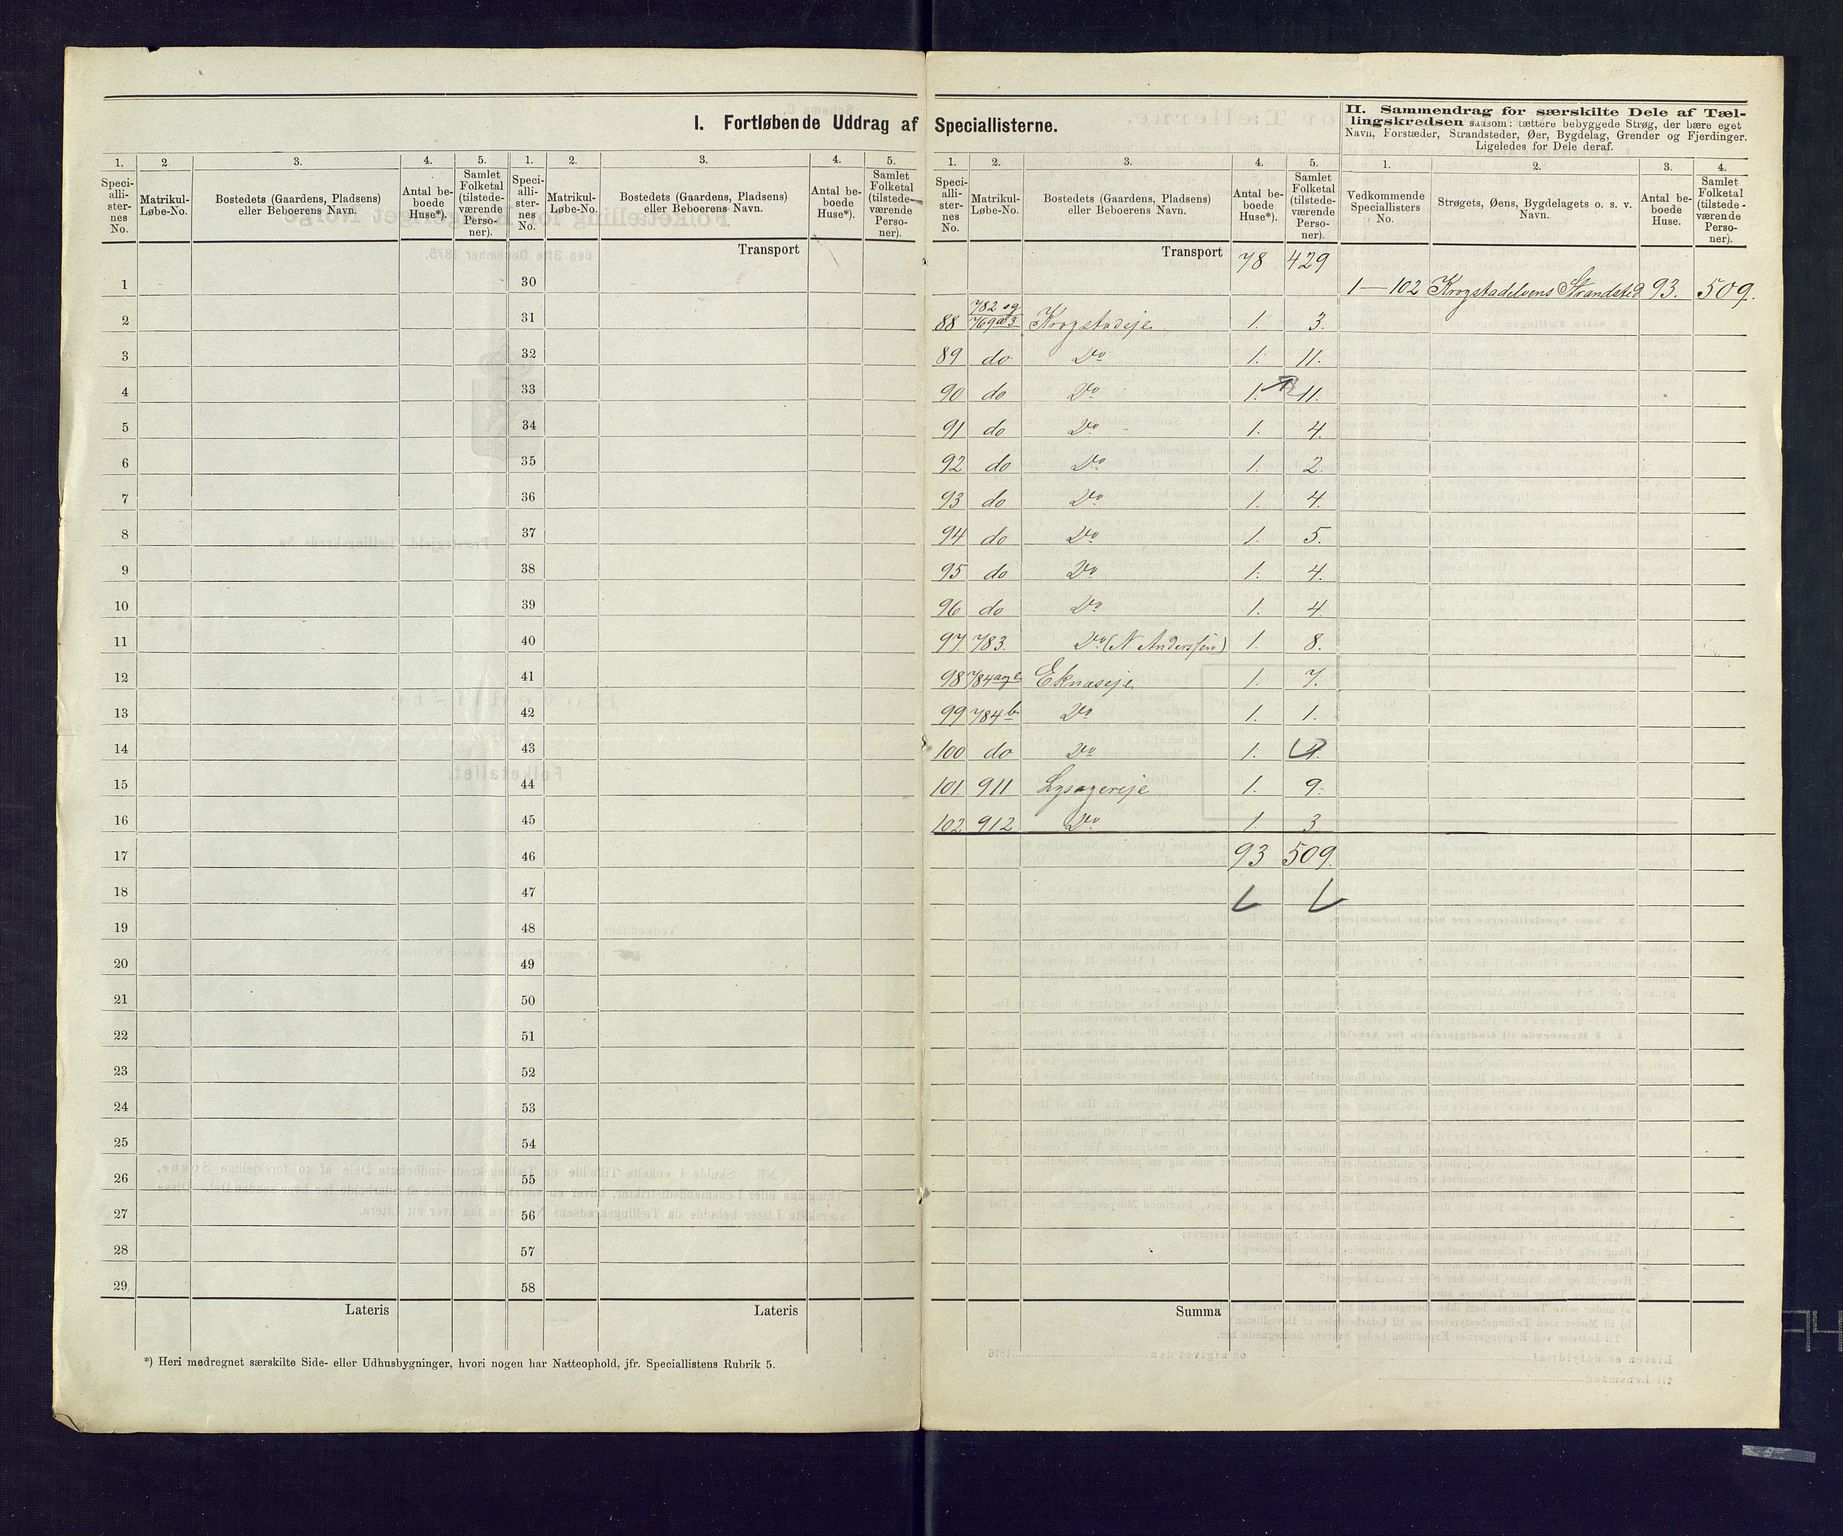 I. Fortløbende Uddrag af Speciallisterne.
II. Sammendrag for særskilte Dele af Tæl-
lingskredsen saasom: tættere bebyggede Strøg, der bære eget
Navn, Forstæder, Strandsteder, Øer, Bygdelag, Grender og Fjerdinger.
Ligeledes for Dele deraf.
1. 2. 3. 4. 5. 1. 2. 3. 4. 5.
Speciallisternes No. Matrikul-Løbe-No. Bostedets (Gaardens, Pladsens) eller Beboerens Navn. Antal beboede Huse*). Samlet Folketal (tilstedeværende Personer). Speciallisternes No. Matrikul-Løbe-No. Bostedets (Gaardens, Pladsens) eller Beboerens Navn. Antal beboede Huse*). Samlet Folketal (tilstedeværende Personer).
Transport
1 30
2 31
3 32
4 33
5 34
6 35
7 36
8 37
9 38
10 39
11 40
12 41
13 42
14 43
15 44
16 45
17 46
18 47
19 48
20 49
21 50
22 51
23 52
24 53
25 54
26 55
27 56
28 57
29 58
Lateris Lateris
*) Heri medregnet særskilte Side- eller Udhusbygninger, hvori nogen har Natteophold, jfr. Speciallistens Rubrik 5.
1. 2. 3. 4. 5.
Speciallisternes No. Matrikul-Løbe-No. Bostedets (Gaardens, Pladsens) eller Beboerens Navn. Antal beboede Huse*). Samlet Folketal (tilstedeværende Personer).
Transport 78 429
88 782 og 769a3 Krogstadeje 1. 3.
89 do Do 1. 11.
90 do Do 1. 11.
91 do Do 1. 4.
92 do Do 1. 2.
93 do Do 1. 4.
94 do Do 1. 5.
95 do Do 1. 4.
96 do Do 1. 4
97 783. Do (N Anderssen) 1. 8.
98 784 a og c Eknaseje 1. 7.
99 784 b Do 1. 1.
100 do Do 1. 4.
101 911 Lysagereje 1. 9.
102 912 Do 1. 3
93 509.
Summa
1. 2. 3. 4.
Vedkommende Speciallisters No. Strøgets, Øens, Bygdelagets o. s. v. Navn. Antal beboede Huse. Samlet Folketal (tilstedeværende Personer).
1–102 Krogstadelvens Strandsted 93. 509.